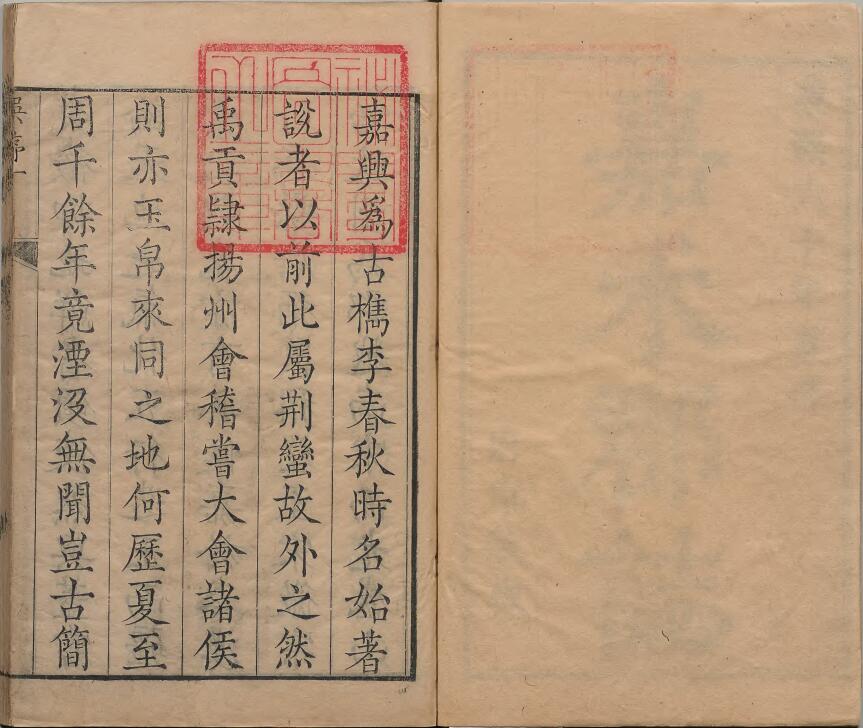 嘉興爲古檇李春秋時名始著
說者以前此屬荆蠻故外之然
禹貢隸揚州會稽嘗大會諸侯
則亦玉帛來同之地何歷夏至
周千餘年竟湮沒無聞豈古簡
吳序一